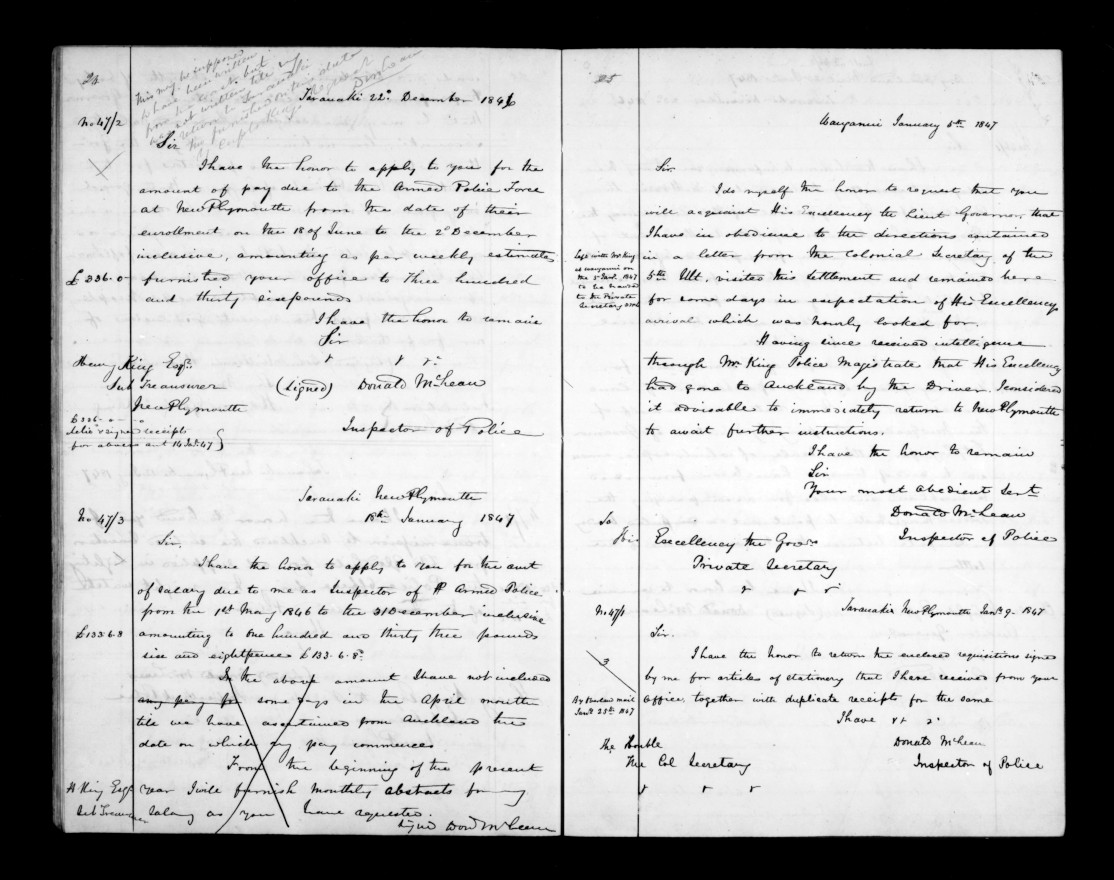 24
This may be supposed
to have been written
but
not written till
Donald McLean
Taranaki 22d. December 1846
No 47/2
Sir
I have the honor to apply to you for the
amount of pay due to the Armed Police Force
at New Plymouth from the date of their
enrollment on the 18 of June to the 2d December
inclusive, amounting as per weekly estimates
£336.0 furnished your office to three hundred
and thirty six pounds
I have the honor to remain
Sir
Henry King Esqr.
Sub Treasurer (signed) Donald McLean
New Plymouth
£336 . 0 - 0
signed receipts
for above act 14 Jany. 47
Inspector of Police
Taranaki New Plymouth
No 47/3 18th January 1847
Sir.
I have the honor to apply to you for the amt
of salary due to me as Inspector of Armed Police
from the 1st May 1846 to the 31 December inclusive
£133.6.8 amounting to One hundred and thirty three pounds
six and eightpence £133.6.8d
In the above amount I have not included
any pay for some days in the April month
till we have ascertained from Auckland the
date on which my pay commences
From the beginning of the present
H King Esqr year I will furnish monthly abstracts for my
Sub Treasurer Salary as you have requested.
Signed Dond McLean
25
Wanganui January 5th 1847
Sir.
I do myself the honor to request that you
will acquaint His Excellency the Lieut Governor, that
I have in obedience to the directions contained
Left with Mr King
at Wanganui on
the 5 Jany. 1847
to be handed
to the Private
Secretary
in a letter from the Colonial Secretary of the
5th Ult. visited this settlement and remained here
for some days in expectation of His Excellency
arrival which was hourly looked for.
Having since received intelligence
through Mr King Police Magistrate that His Excellency
had gone to Auckland by the Driver. I considered
it advisable to immediately return to New Plymouth
to await further instructions.
I have the honor to remain
Sir
Your most obedient Sert
Donald McLean
To Inspector of Police
His Excellency the Govrs
Private Secretary
No 47/1 Taranaki New Plymouth Jany. 9. 1847
Sir.
3
I have the honor to return the enclosed requisitions signed
by me for articles of stationery that I have received from your
By Overland mail
Jany 25th 1847
Office, together with duplicate receipts for the same
I have &c &c
The Honble Donald McLean
The Col Secretary Inspector of Police